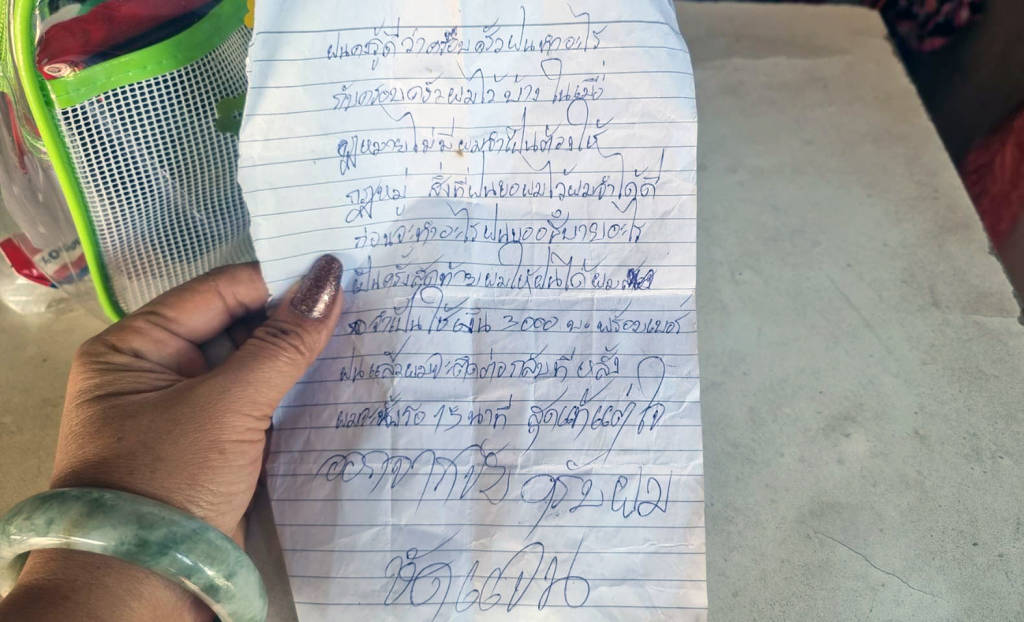 ฝนคงรู้ดีว่าครอบครัวฝนทำอะไร
กับครอบครัวผมไว้บ้าง ในเมื่อ
กฎหมายไม่มีผมจำเป็นต้องใช้
กฎหมู่ สิ่งที่ฝนขอผมไว้ผมจำได้ดี
ก่อนจะทำอะไรฝนขออธิบายอะไร
เป็นครั้งสุดท้ายผมให้ฝนได้ผม
จำเป็นใช้เงิน 3000 บ. พร้อมเบอร์
ฝนแล้วผมจะติดต่อกลับที่หลัง
ผมจะนั่งรอ 15 นาที สุดแท้แต่ใจ
ครับผม
ชัดเจน